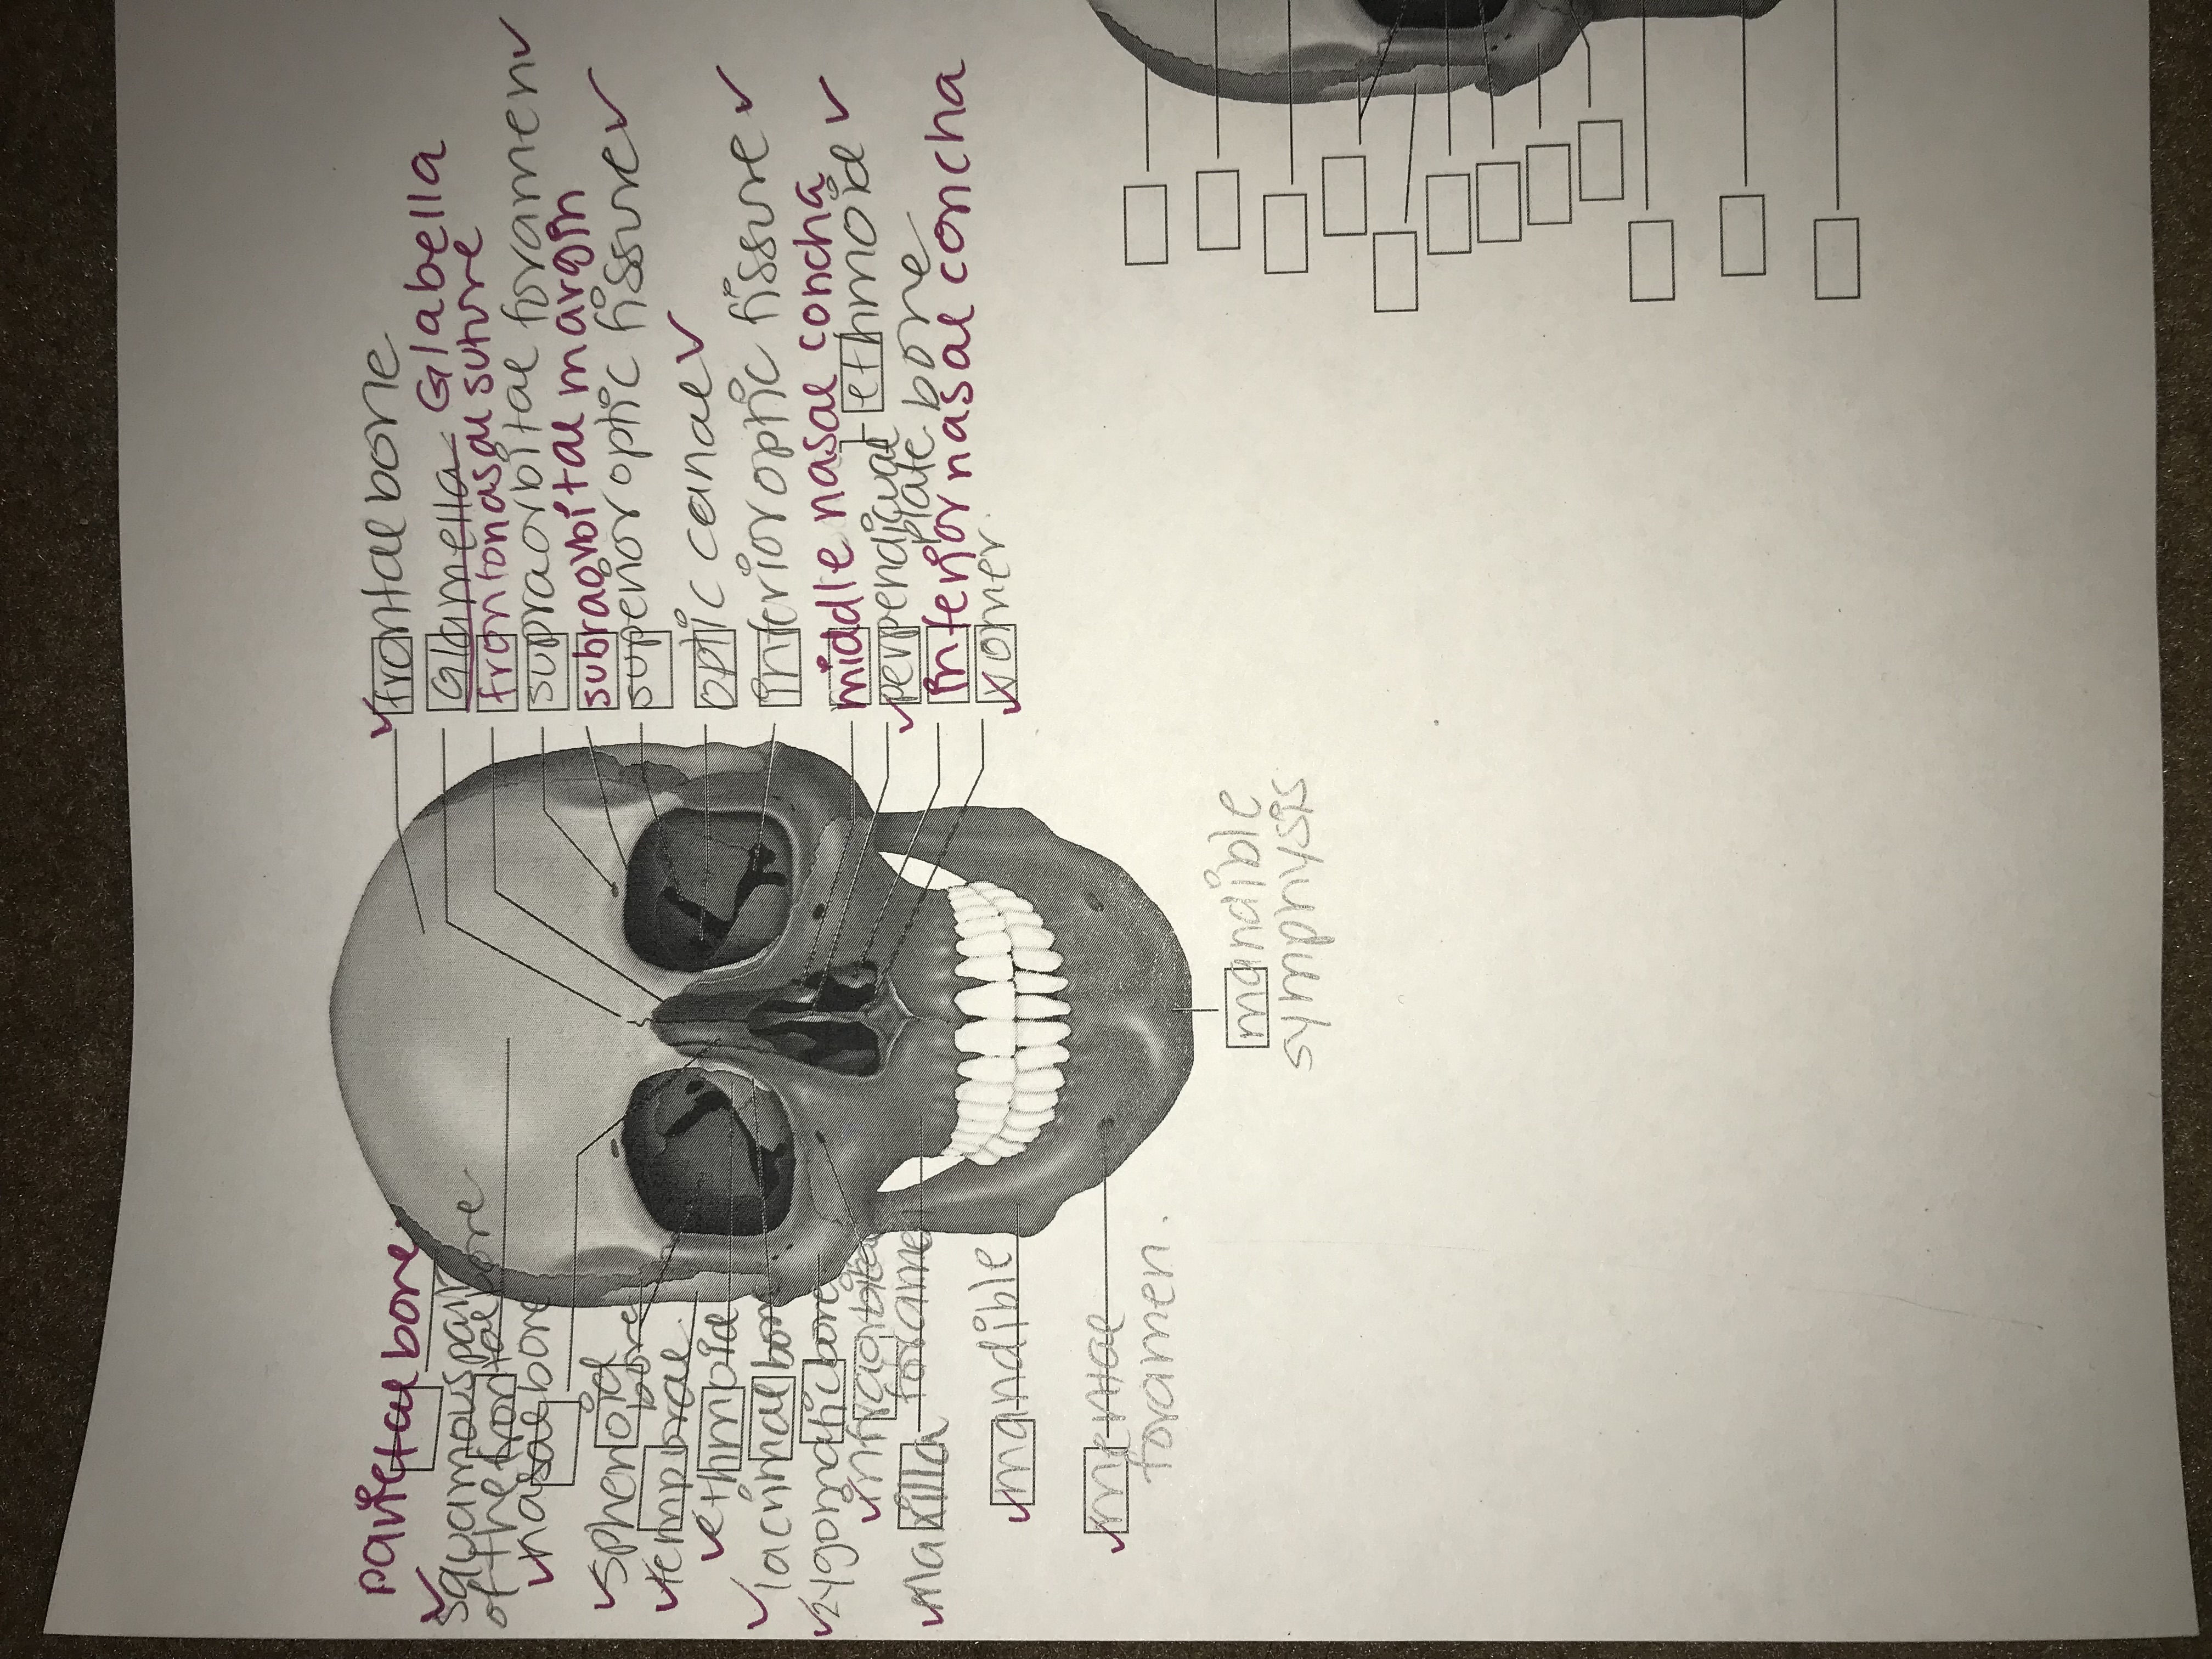 frontal bone
Glamella - Glabella
frontonasal suture
supraorbital foramen
subraorbital margin
superior optic fissure
optic canal
inferior optic fissure
middle nasal concha
ethmoid
perpendicular
plate bone
Inferior nasal concha
vomer
parietal bone
squamous part
of the frontal bone
nasal bone
sphenoid
bone
temporal
ethmoid
lacrimal bone
zygomatic bone
infraorbital
foramen
maxilla
mandible
mental
foramen.
mandible
symphysis